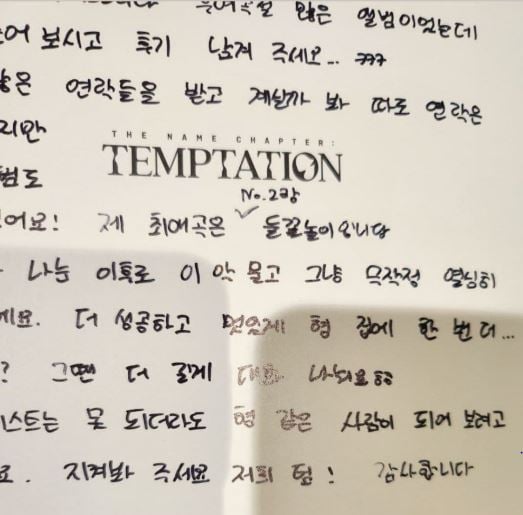 많은 앨범이었는데
어 보시고 후기 남겨 주세요... ㅋㅋㅋ
많은 연락들을 받고 계실까 봐 따로 연락은
지만
THE NAME CHAPTER:
TEMPTATION
No.2랑
범도
어요! 제 최애곡은 ✓ 들꽃놀이입니다
나눈 이후로 이 악 물고 그냥 무작정 열심히
세요. 더 성공하고 멋있게 형 집에 한 번 더...
? 그땐 더 길게 대화 나눠요 형
스트는 못 되더라도 형 같은 사람이 되어 보려고
요. 지켜봐 주세요 저희 형! 감사합니다